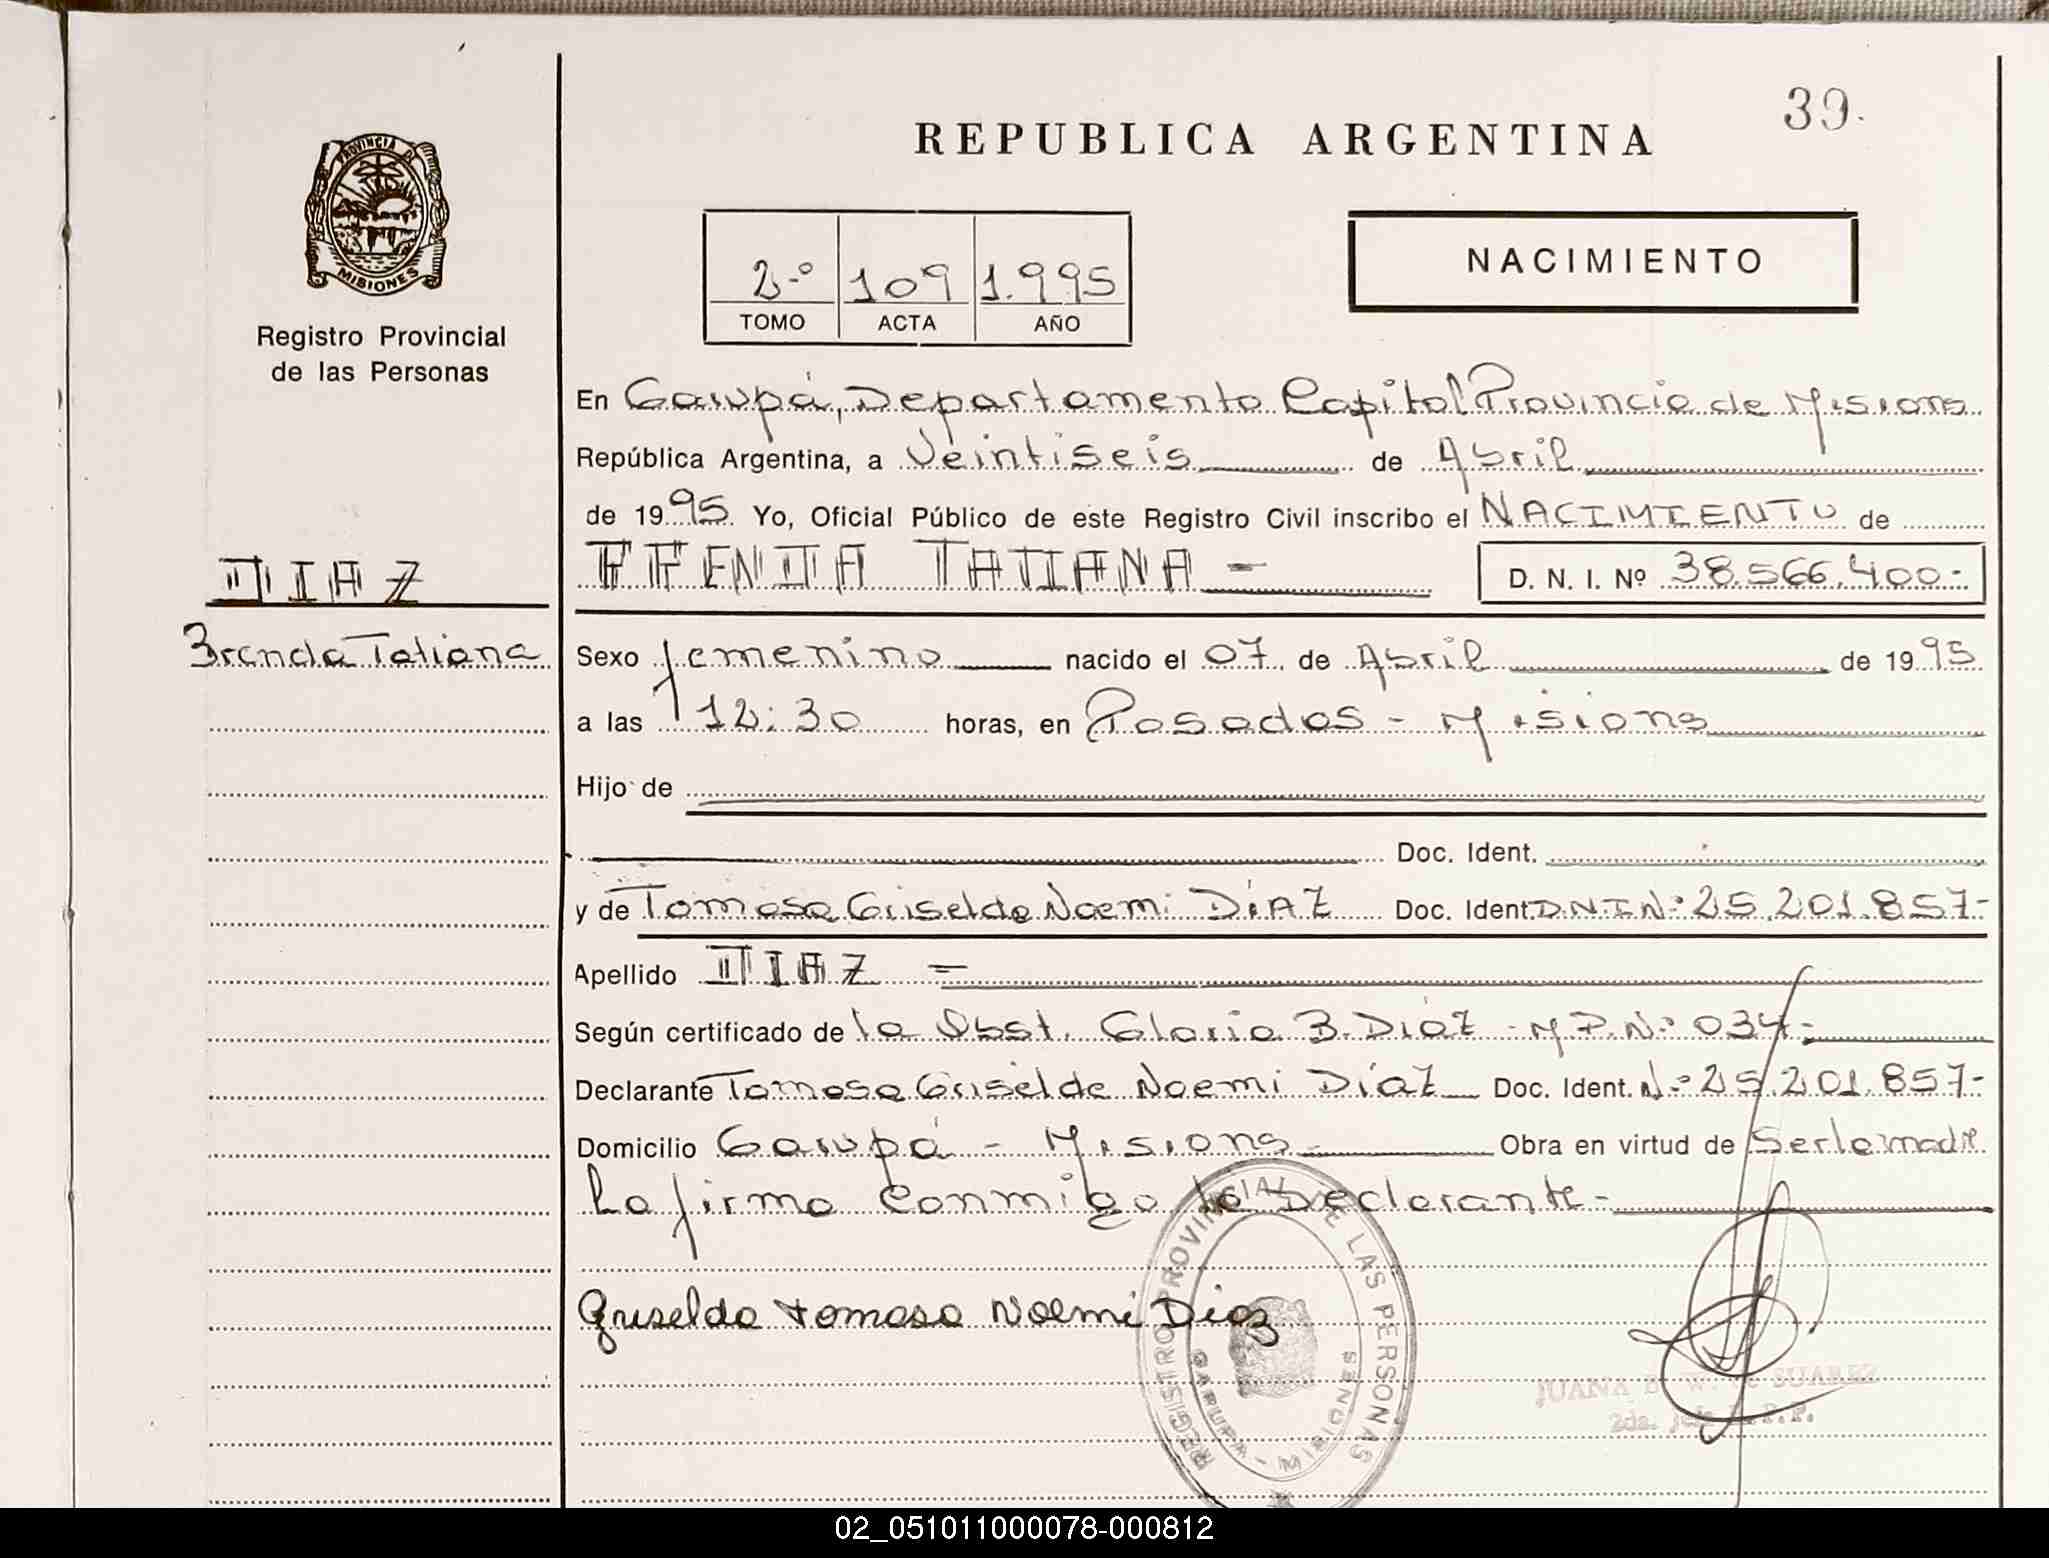 39.
REPUBLICA ARGENTINA
PROVINCIA DE
MISIONES
Registro Provincial
de las Personas
NACIMIENTO
2º 109 1.995
TOMO ACTA AÑO
En Garupá, Departamento Capital Provincia de Misiones
República Argentina, a Veintiseis de Abril
de 1995 Yo, Oficial Público de este Registro Civil inscribo el NACIMIENTO de
DIAZ
BRENDA TATIANA - D. N. I. Nº 38.566.400-
Brenda Tatiana
Sexo femenino nacido el 07 de Abril de 1995
a las 12:30 horas, en Posadas - Misiones
Hijo de
Doc. Ident.
y de Tomasa Griselda Noemi DíAZ Doc. Ident. D.N.I Nº 25.201.857-
Apellido DIAZ =
Según certificado de la Obst. Gloria B. Díaz - M.P. Nº 034-
Declarante Tomasa Griselda Noemi Díaz Doc. Ident. Nº 25.201.857-
Domicilio Garupá - Misiones Obra en virtud de Ser la madre
La firma conmigo la Declarante-
Griselda tomasa Noemi Diaz
REGISTRO PROVINCIAL DE LAS PERSONAS
GARUPA - MISIONES
JUANA B. W. de SUAREZ
2da. Jefe R.P.P.
02_051011000078-000812